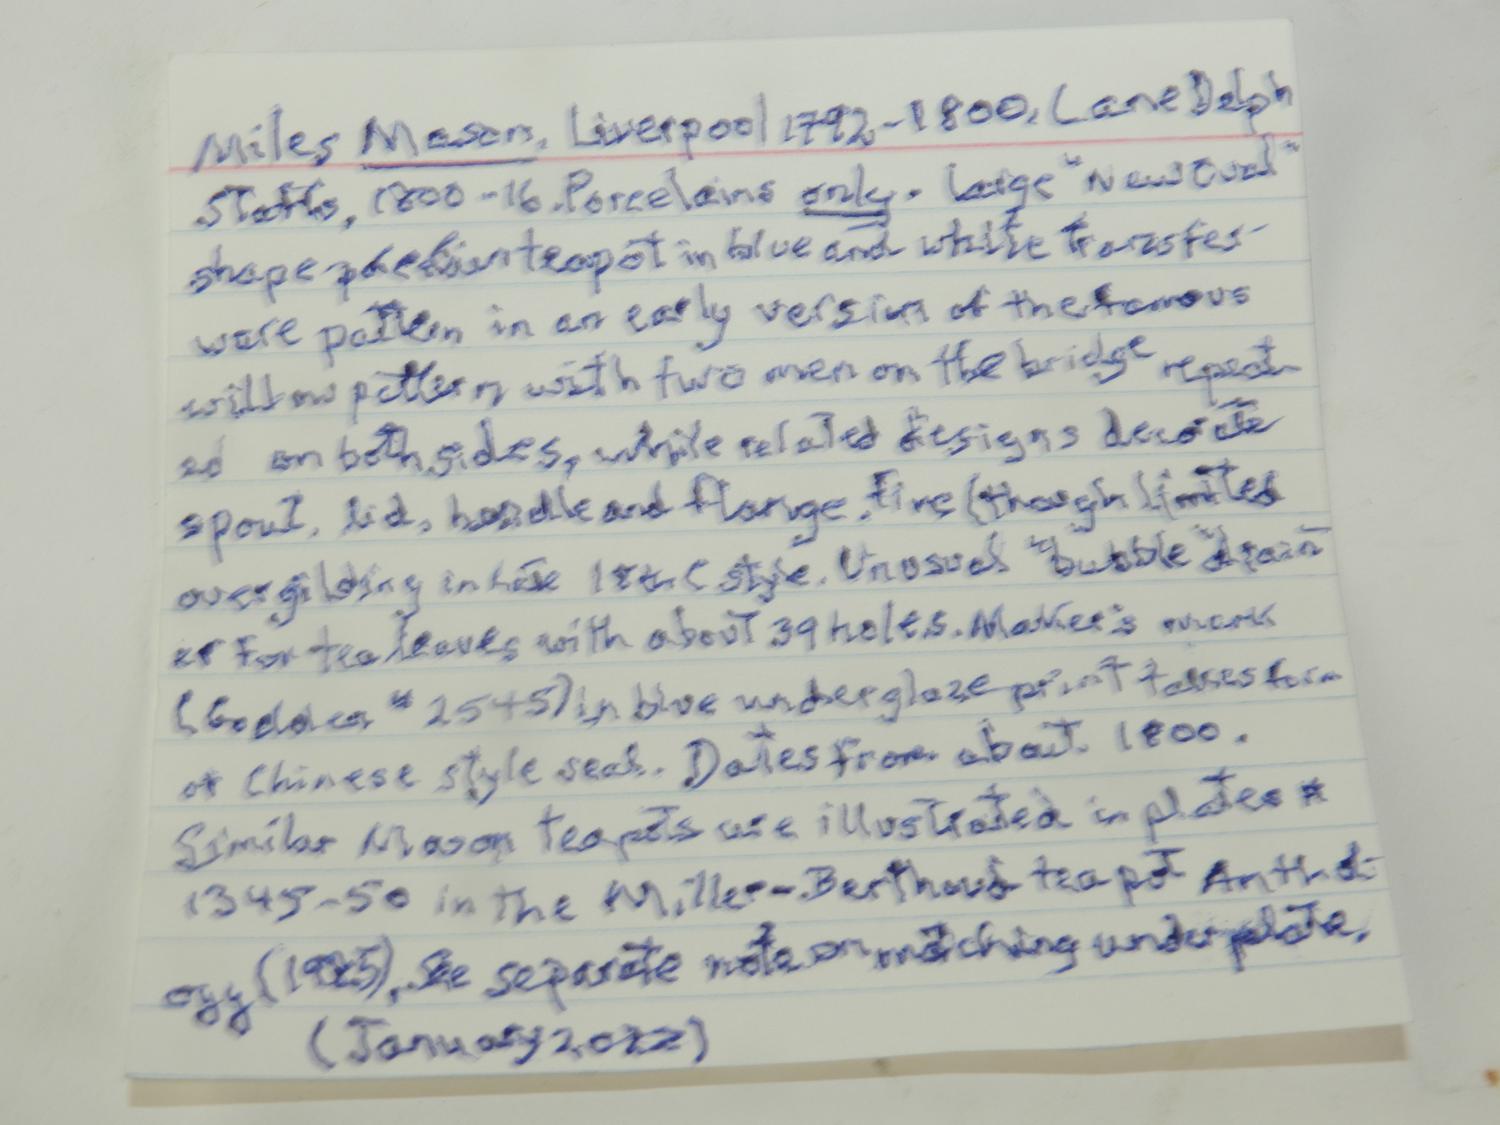 Miles Mason, Liverpool 1792-1800, Lane Delph
Staffs, 1800-16. Porcelains only. Large "New Oval"
shape teapot in blue and white transfer-
ware pattern in an early version of the famous
willow pattern with two men on the bridge repeat-
ed on both sides, while related designs decorate
spout, lid, handle and flange. Fine (though limited
overgilding in late 18th C style. Unusual "bubble" drain
er for tea leaves with about 39 holes. Maker's mark
(Godden # 2545) in blue underglaze print form
of Chinese style seal. Dates from about 1800.
Similar Mason teapots are illustrated in plates #
1345-50 in the Miller-Berthoud teapot Anthol-
ogy (1985), See separate note on matching underplate.
(January 2022)